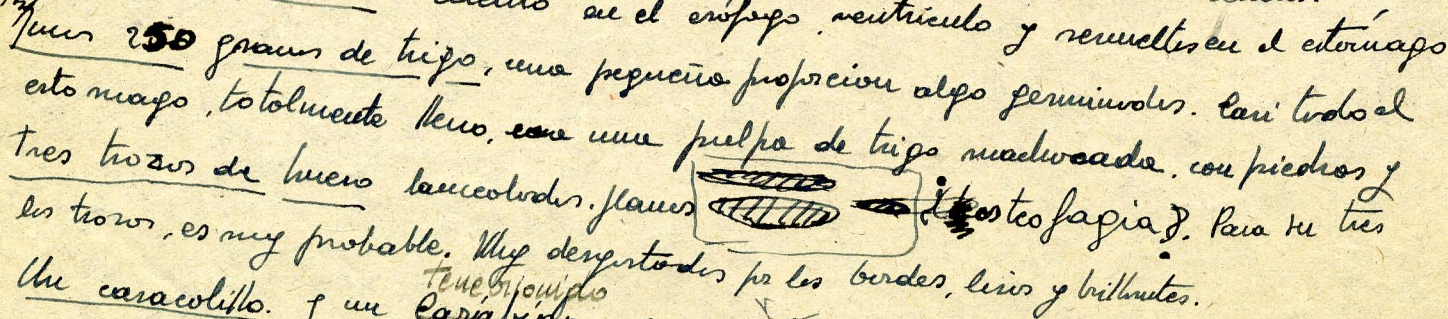 en el esófago, ventrículo y revueltos en el estómago
Unos 250 granos de trigo, una pequeña proporcion algo germinados. Casi todo el
estomago, totalmente lleno, una pulpa de trigo machacada, con piedras y
tres trozos de hueso lanceolados, planos ¿osteofagia?. Para su tres
los trozos, es muy probable. Muy desgastados por los bordes, lisos y brillantes.
Tenebrionido
Un caracolillo. y un